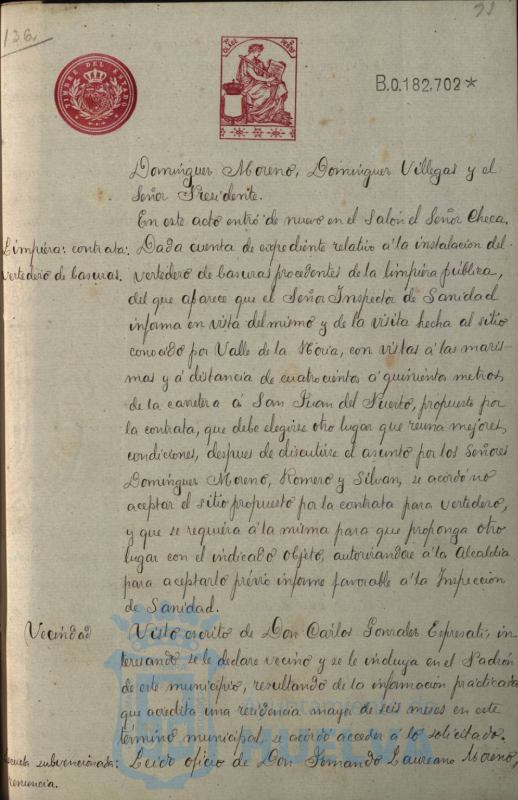 136
93
TIMBRE DEL ESTADO
B.0.182,702*
Dominguez Moreno, Dominguez Villegas y el
Señor Presidente.
En este acto entró de nuevo en el Salón el Señor Checa.
Limpieza: contrata:
vertedero de basuras.
Dada cuenta de expediente relativo á la instalacion del
vertedero de basuras procedentes de la limpieza pública,
del que aparece que el Señor Inspector de Sanidad
informa en vista del mismo y de la visita hecha al sitio
conocido por Valle de la Noria, con vistas á las maris-
mas y á distancia de cuatrocientos á quinientos metros
de la carretera á San Juan del Puerto, propuesto por
la contrata, que debe elegirse otro lugar que reuna mejores
condiciones, despues de discutirse el asunto por los Señores
Dominguez Moreno, Romero y Silvan, se acordó no
aceptar el sitio propuesto por la contrata para vertedero,
y que se requiera á la misma para que proponga otro
lugar con el indicado objeto, autorizandose á la Alcaldia
para aceptarlo prévio informe favorable á la Inspeccion
de Sanidad.
Vecindad
Visto escrito de Don Carlos Gonzalez Espresati, in
teresando se le declare vecino y se le incluya en el Padrón
de este municipio, resultando de la información practicada
que acredita una residencia mayor de seis meses en este
término municipal, se acordó acceder á lo solicitado.
Escuela subvencionada:
renuncia.
Leido oficio de Don Fernando Laureano Moreno,
HUELVA